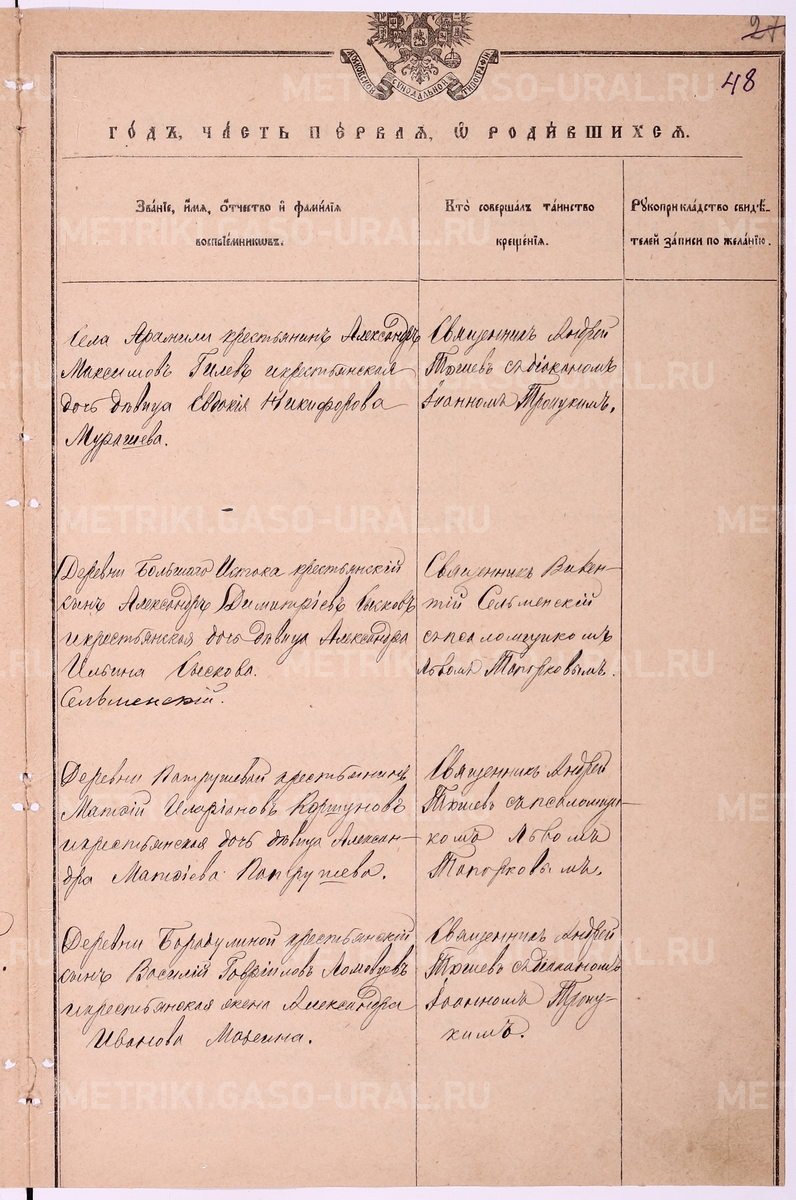 27
48
МОСКОВСКОЙ СѴНОДАЛЬНОЙ ТИПОГРАФІИ
ГО́ДЪ, ЧА́СТЬ ПЕ́РВАѦ, Ѡ҆ РОДИ́ВШИХСѦ.
Зва́нїе, и҆́мѧ, ѻ҆́тчество и҆ фами́лїѧ
воспрїе́мникѡвъ.
Кто̀ соверша́лъ та́инство
креще́нїѧ.
Рꙋкоприкла́дство свидѣ́-
телей за́писи по жела́нїю.
Села Арамили крестьянинъ Александръ
Максимовъ Гилевъ и крестьянская
дочь дѣвица Евдокія Никифорова
Мурашева.
Священникъ Андрей
Тюшевъ съ діакономъ
Іоанномъ Троицкимъ.
Деревни Большаго Истока крестьянскій
сынъ Александръ Димитріевъ
и крестьянская дочь дѣвица Александра
Ильина
Сельменскій.
Священникъ Викен-
тій Сельменскій
съ псаломщикомъ
Львомъ Топорковымъ.
Деревни Патрушевой крестьянинъ
Матѳій Иларіоновъ Коршуновъ
и крестьянская дочь дѣвица Алексан-
дра Матѳіева Патрушева.
Священникъ Андрей
Тюшевъ съ псаломщи-
комъ Львомъ
Топорковымъ.
Деревни Бородулиной крестьянскій
сынъ Василій Гавріиловъ
и крестьянская жена Александра
Иванова Мазеина.
Священникъ Андрей
Тюшевъ съ діакономъ
Іоанномъ Троиц-
кимъ.
METRIKI.GASO-URAL.RU